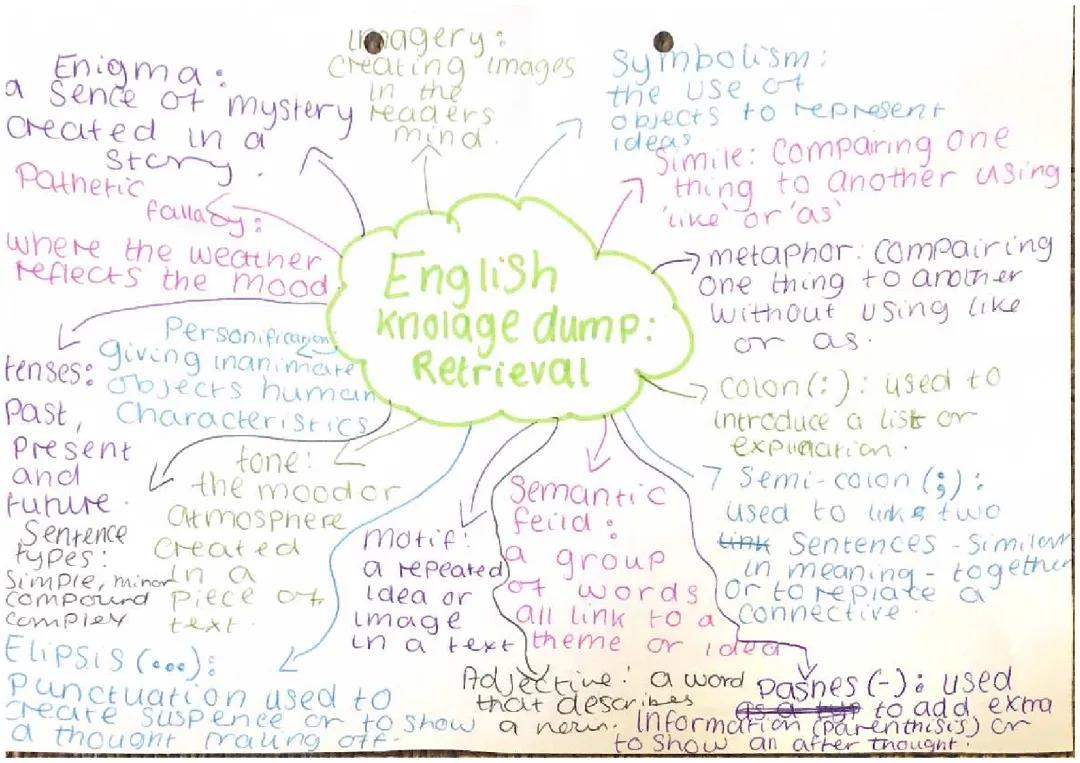 English
knolage dump:
Retrieval
Enigma:
a sence of mystery
created in a
story.
Imagery:
Creating images
in the
readers
mind.
Symbolism:
the use of
objects to represent
ideas
Simile: Comparing one
thing to another using
'like' or 'as'
metaphor: compairing
one thing to another
without using like
or as.
colon (:) : used to
introduce a list or
explination.
Semi-colon (;) :
used to link two
link sentences - similar
in meaning - together
or to replate a
connective.
Dashes (-): used
to add extra
information (parenthisis) or
to show an after thought.
Semantic
feild:
a group
of words
all link to a
theme or idea
Adjective: a word
that describes
a noun.
Motif:
a repeated
idea or
image
in a text
Elipsis (...):
Punctuation used to
create suspence or to show
a thought traling off.
tone:
the mood or
atmosphere
created
in a
piece of
text.
Sentence
types:
Simple, minor
compound
complex
Personification
giving inanimate
objects human
characteristics
tenses:
Past,
Present
and
future.
Pathetic
fallacy:
where the weather
reflects the mood